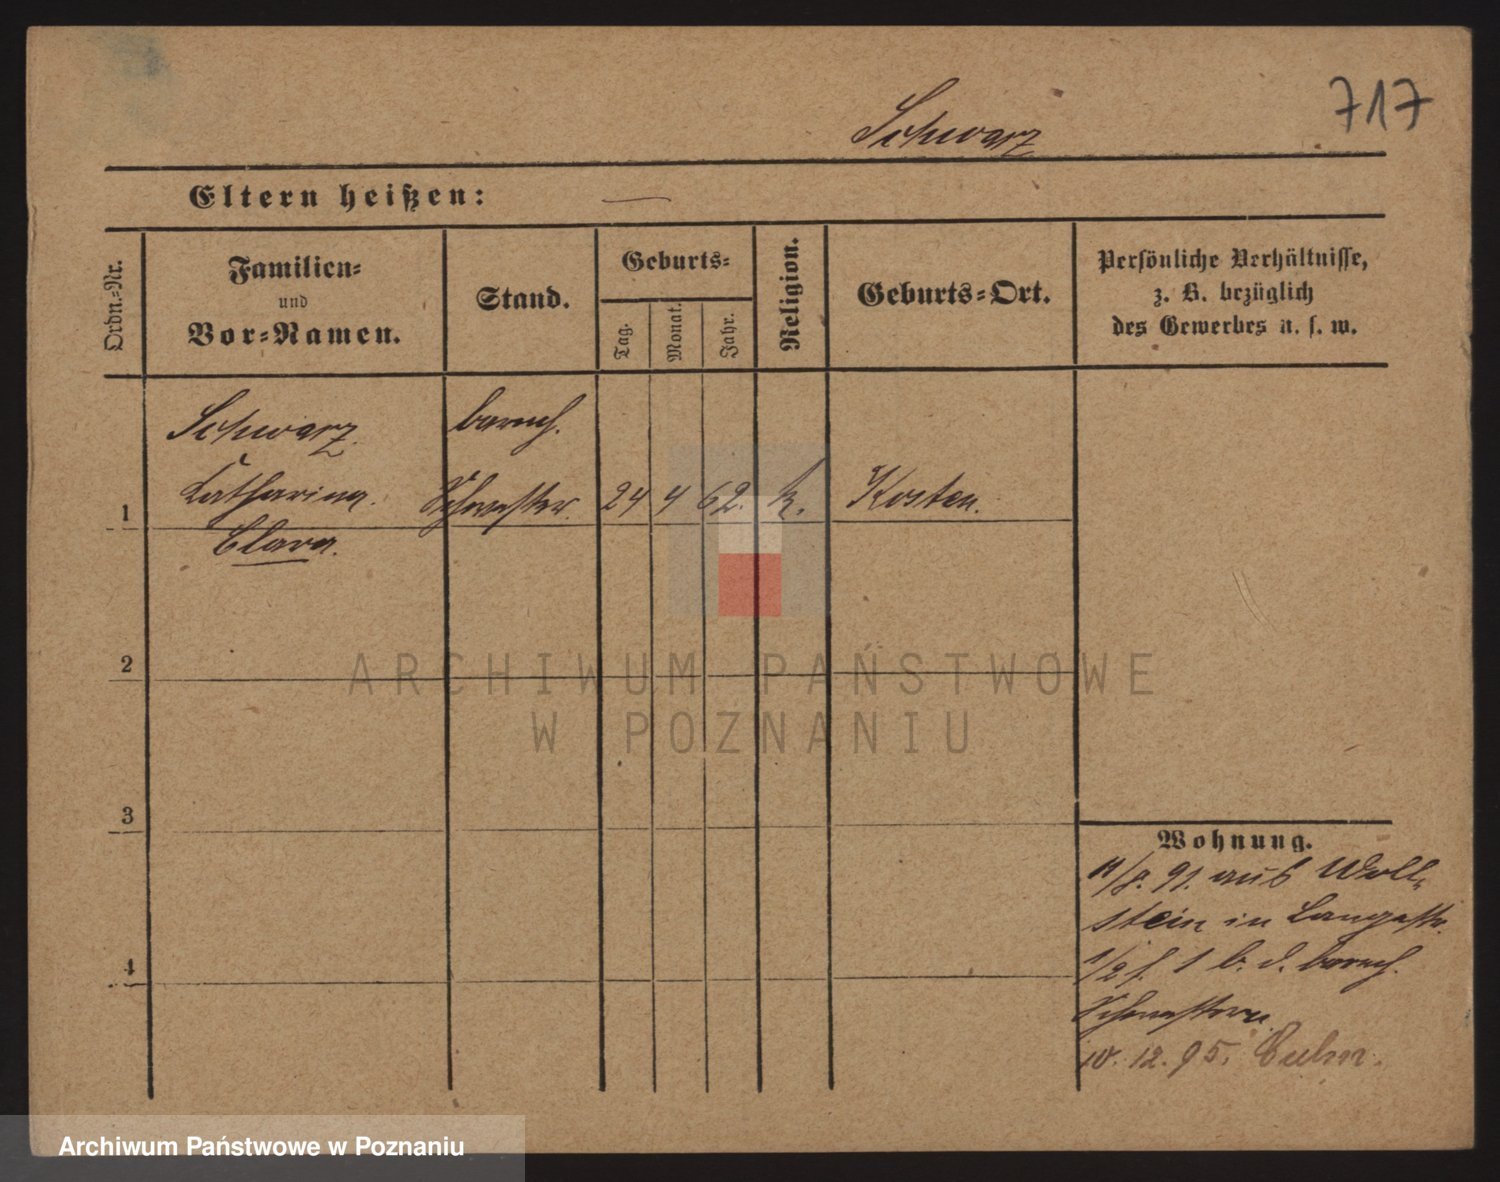 717
Schwarz
Eltern heißen: —
Ordn.-Nr.
Familien-
und
Vor-Namen.
Stand.
Geburts-
Tag.
Monat.
Jahr.
Religion.
Geburts-Ort.
Persönliche Verhältnisse,
z. B. bezüglich
des Gewerbes u. s. w.
Schwarz barmh.
1 Catharina. Schwester. 24 4 62. k. Kosten.
Clara.
2
3
4
Wohnung.
11/8. 91. aus Woll-
stein in Langestr.
1/2 f. 1 b. d. barmh.
Schwestern
10. 12. 95. Culm.
ARCHIWUM PAŃSTWOWE
W POZNANIU
Archiwum Państwowe w Poznaniu